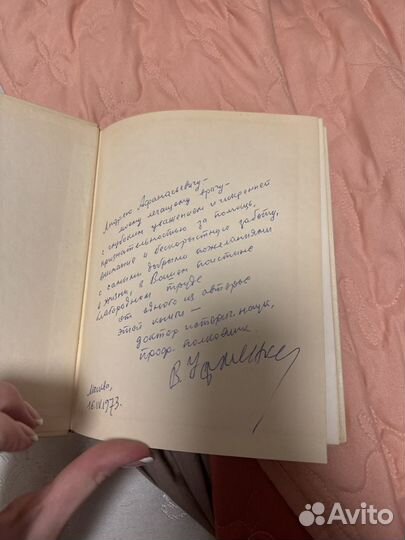 Андрею Афанасьевичу –
моему лечащему врачу –
с глубоким уважением и искренней
признательностью за помощь,
внимание и бескорыстную заботу,
с самыми добрыми пожеланиями
в жизни, в Вашем поистине
благородном труде
от одного из авторов
этой книги –
доктор историч. наук,
проф. полковник
В.
Москва,
16.IV.1973.
Avito